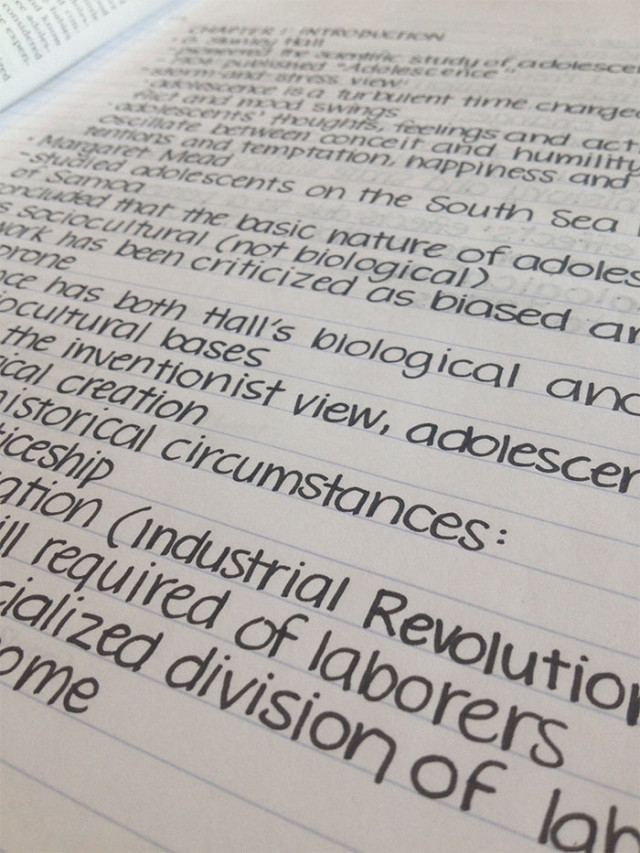 CHAPTER 1: INTRODUCTION
· Stanley Hall
the scientific study of adolescen
- first published "Adolescence"
- storm-and-stress view:
adolescence is a turbulent time charged
and mood swings
· adolescents' thoughts, feelings and acti
oscillate between conceit and humility
tentions and temptation, happiness and
· Margaret Mead
- studied adolescents on the South Sea I
of Samoa
oncluded that the basic nature of adoles
s sociocultural (not biological)
work has been criticized as biased an
prone
nce has both Hall's biological and
iocultural bases
the inventionist view, adolescen
ical creation
historical circumstances:
ticeship
ation (Industrial Revolution
ill required of laborers
cialized division of lab
ome